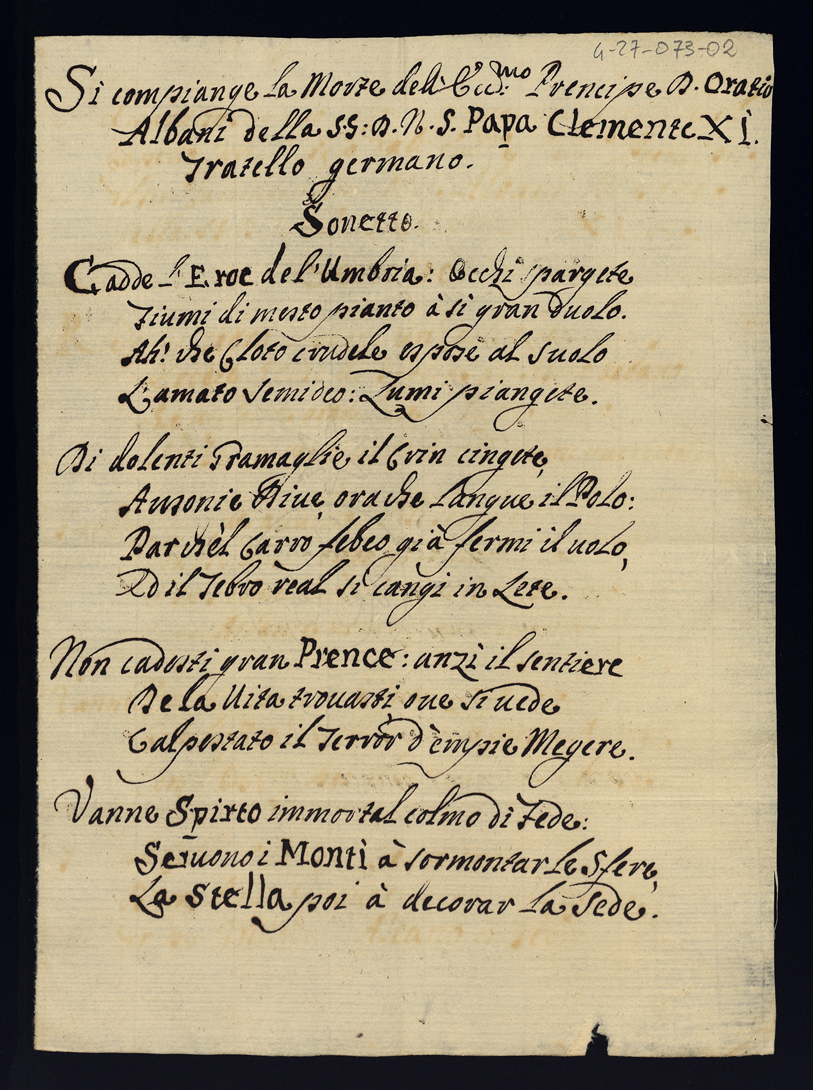 4-27-073-02
Si compiange la Morte dell' Ecc:mo Prencipe D. Oratio
Albani della SS: D. N. S. Papa Clemente XI.
Fratello germano.
Sonetto.
Cadde l'Eroe del'Umbria: Occhi spargete
Fiumi di mesto pianto à sì gran duolo.
Ah! che Cloto crudele espose al suolo
L'amato semideo: Lumi piangete.
Di dolenti Gramaglie il Crin cingete,
Ausonie Riue, ora che langue il Polo:
Par ch'èl Carro febeo già fermi il uolo,
Ed il Tebro real si cangi in Lete.
Non cadesti gran Prence: anzi il sentiere
De la Uita trouasti oue si uede
Calpestato il Terror d'empie Megere.
Vanne Spirto immortal colmo di Fede:
Seruono i Monti à sormontar le Sfere,
La Stella poi à decorar la Sede.